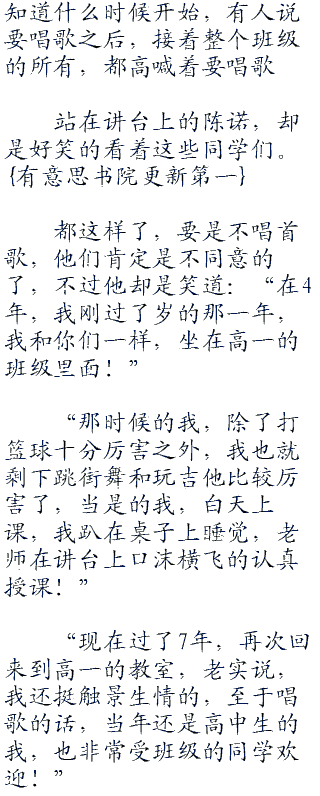 知道什么时候开始，有人说
要唱歌之后，接着整个班级
的所有，都高喊着要唱歌
站在讲台上的陈诺，却
是好笑的看着这些同学们。
{有意思书院更新第一}
都这样了，要是不唱首
歌，他们肯定是不同意的
了，不过他却是笑道：“在4
年，我刚过了岁的那一年，
我和你们一样，坐在高一的
班级里面！”
“那时候的我，除了打
篮球十分厉害之外，我也就
剩下跳街舞和玩吉他比较厉
害了，当是的我，白天上
课，我趴在桌子上睡觉，老
师在讲台上口沫横飞的认真
授课！”
“现在过了7年，再次回
来到高一的教室，老实说，
我还挺触景生情的，至于唱
歌的话，当年还是高中生的
我，也非常受班级的同学欢
迎！”